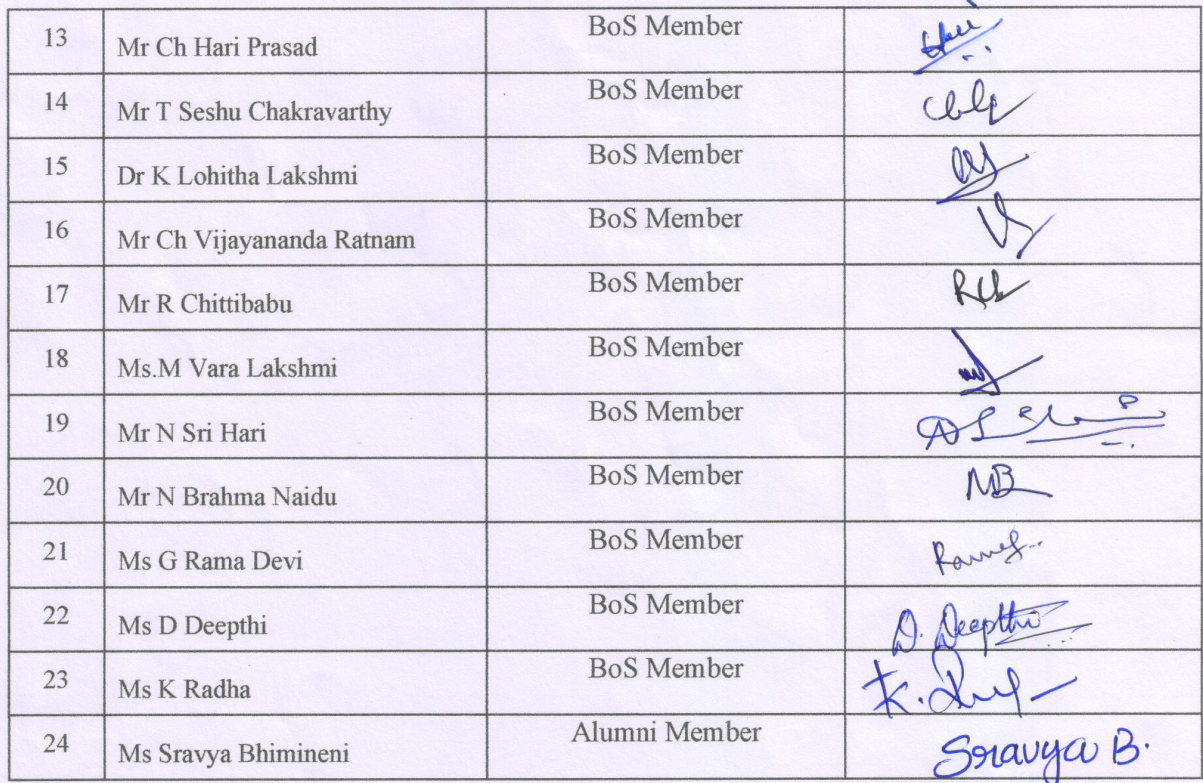 13 Mr Ch Hari Prasad BoS Member
14 Mr T Seshu Chakravarthy BoS Member
15 Dr K Lohitha Lakshmi BoS Member
16 Mr Ch Vijayananda Ratnam BoS Member
17 Mr R Chittibabu BoS Member
18 Ms.M Vara Lakshmi BoS Member
19 Mr N Sri Hari BoS Member
20 Mr N Brahma Naidu BoS Member NB
21 Ms G Rama Devi BoS Member
22 Ms D Deepthi BoS Member D. Deepthi
23 Ms K Radha BoS Member K.
24 Ms Sravya Bhimineni Alumni Member Sravya B.